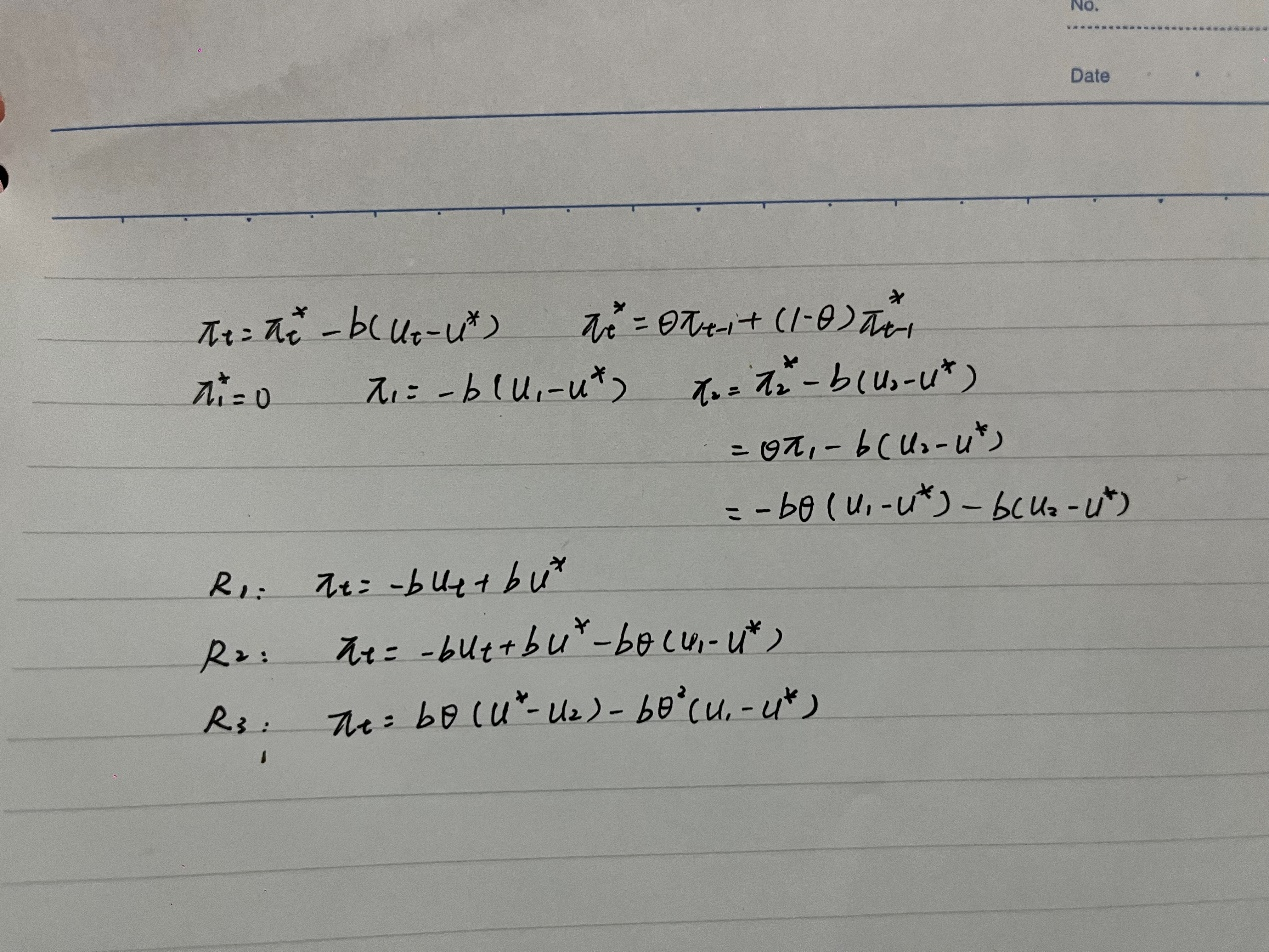 No.
Date
πt = πt* - b(Ut - U*) πt* = θπt-1 + (1-θ)πt-1*
π1* = 0 π1 = -b(U1 - U*) π2 = π2* - b(U2 - U*)
= θπ1 - b(U2 - U*)
= -bθ(U1 - U*) - b(U2 - U*)
R1: πt = -bUt + bU*
R2: πt = -bUt + bU* - bθ(U1 - U*)
R3: πt = bθ(U* - U2) - bθ²(U1 - U*)